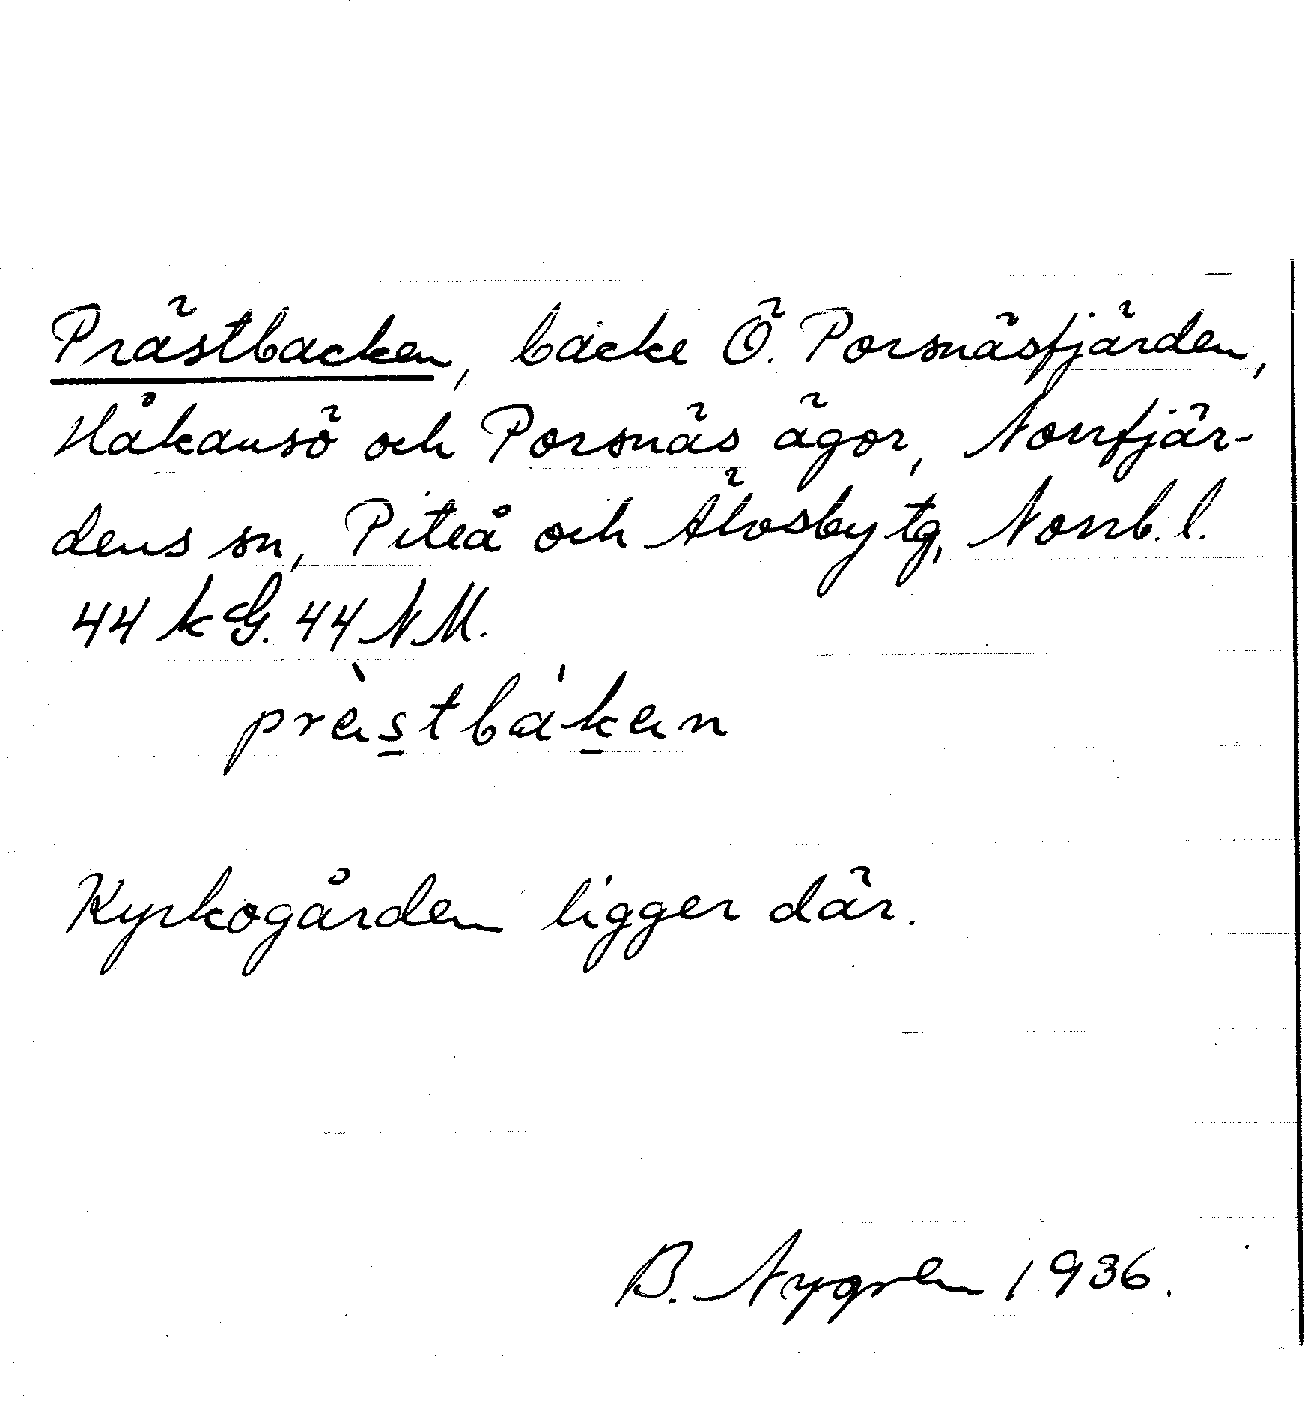 Prästbacken, backe Ö. Porsnäsfjärden,
Håkansö och Porsnäs ägor, Norrfjär-
dens sn, Piteå och Älvsby tg, Norrb. l.
44 k G. 44 N M.
prèstbákan
Kyrkogården ligger där.
B. Nygren 1936.